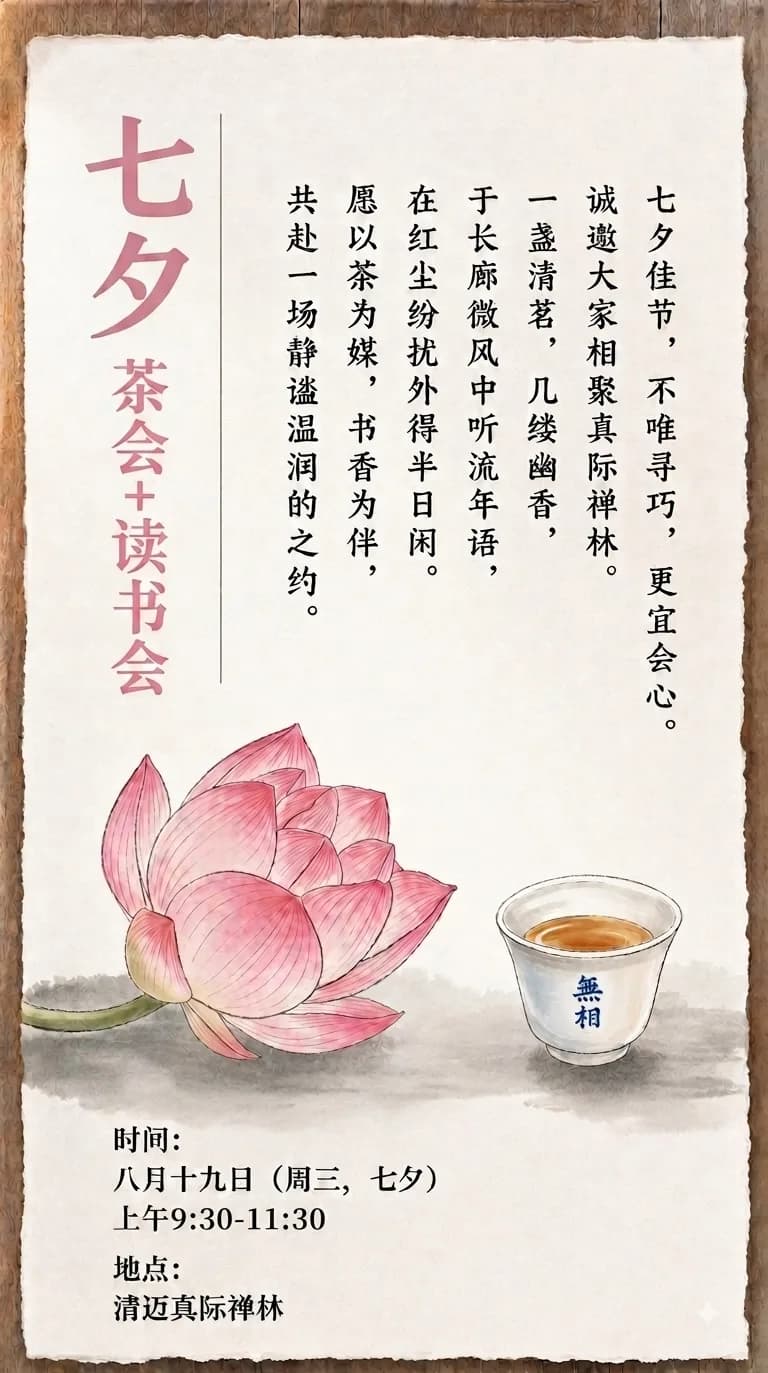 七夕
茶会+读书会
七夕佳节，不唯寻巧，更宜会心。
诚邀大家相聚真际禅林。
一盏清茗，几缕幽香，
于长廊微风中听流年语，
在红尘纷扰外得半日闲。
愿以茶为媒，书香为伴，
共赴一场静谧温润的之约。
無相
时间：
八月十九日（周三，七夕）
上午9:30-11:30
地点：
清迈真际禅林